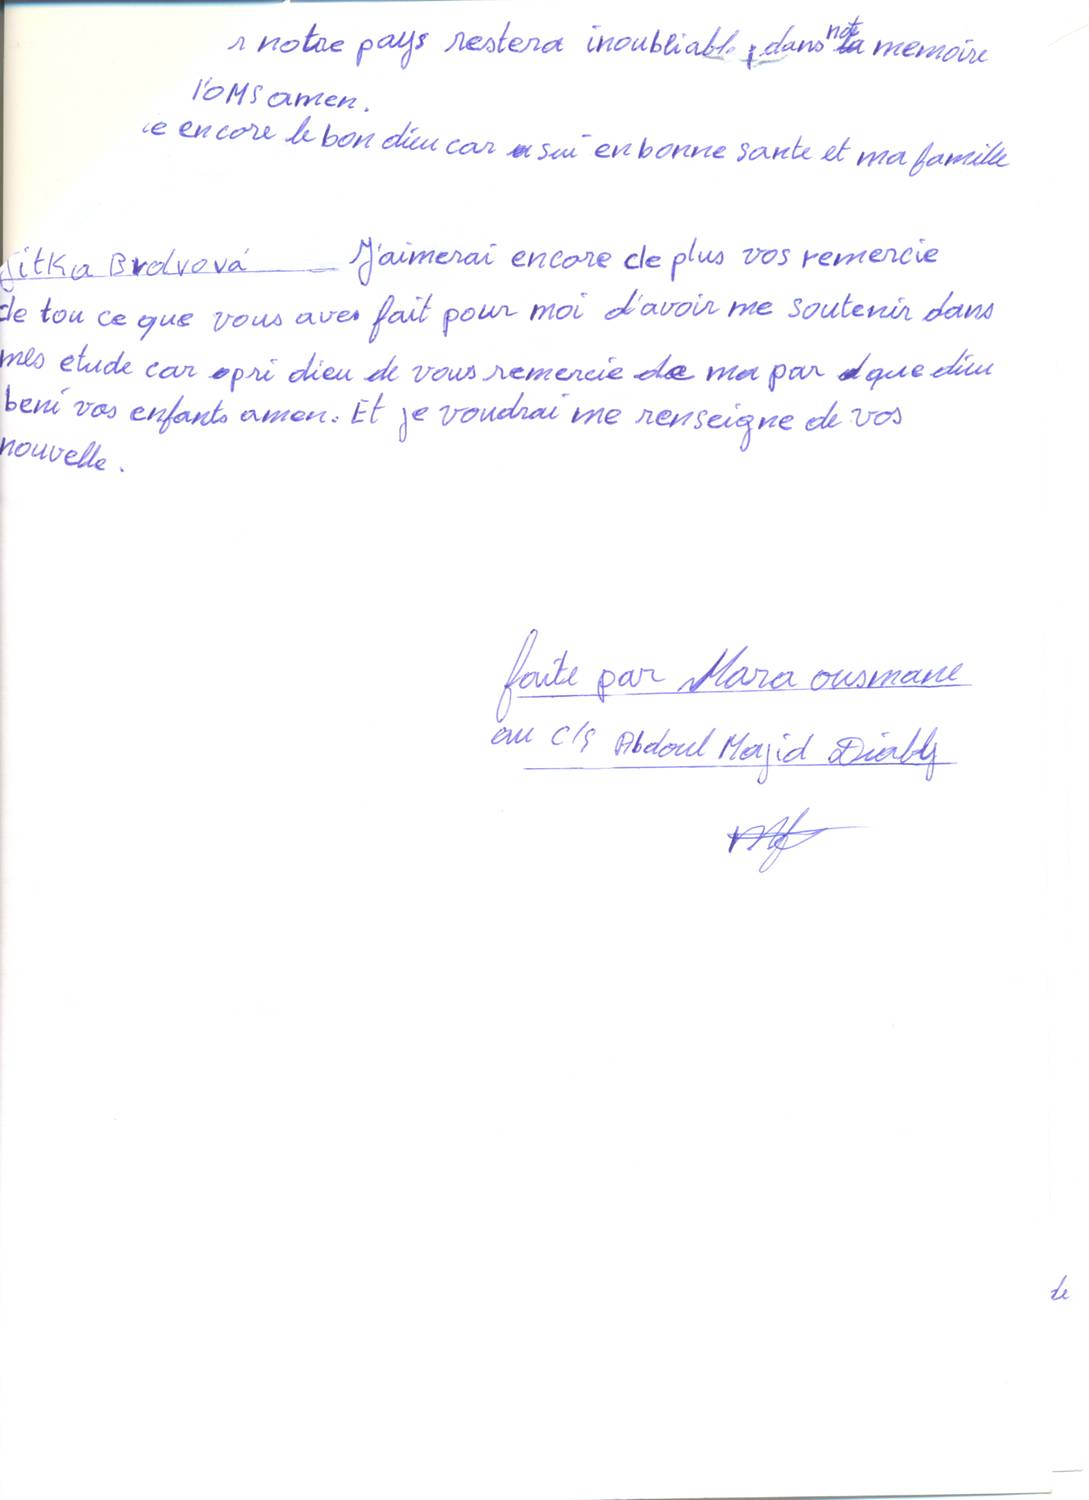 notre pays restera inoubliable, dans notre memoire
l'OMS amen.
encore le bon dieu car sui en bonne sante et ma famille
Jitka Brdvová J'aimerai encore de plus vos remercie
de tou ce que vous aves fait pour moi d'avoir me soutenir dans
mes etude car pri dieu de vous remercie de ma par que dieu
beni vos enfants amen. Et je voudrai me renseigne de vos
nouvelle.
faite par Mara ousmane
au C/S Abdoul Majid Diaby
de